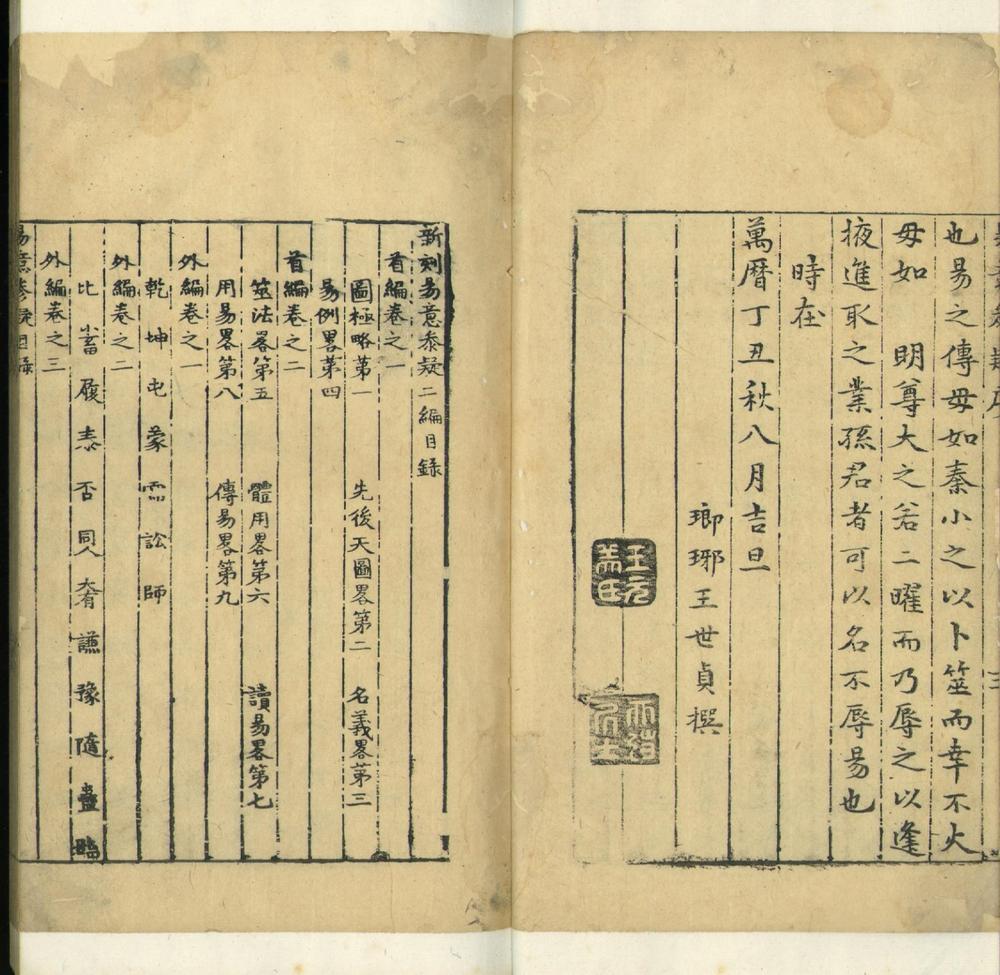 也易之傳毋如秦小之以卜筮而幸不火
毋如　明尊大之若二曜而乃辱之以逢
掖進取之業孫君者可以名不辱易也
時在
萬曆丁丑秋八月吉旦
瑯琊王世貞撰
王元美氏
新刻易意參疑二編目錄
首編卷之一
圖極略第一　先後天圖畧第二　名義畧第三
易例畧第四
首編卷之二
筮法畧第五　體用畧第六　讀易畧第七
用易畧第八　傳易畧第九
外編卷之一
乾　坤　屯　蒙　需　訟　師
外編卷之二
比　小畜　履　泰　否　同人　大有　謙　豫　隨　蠱　臨
外編卷之三
易意參疑目錄